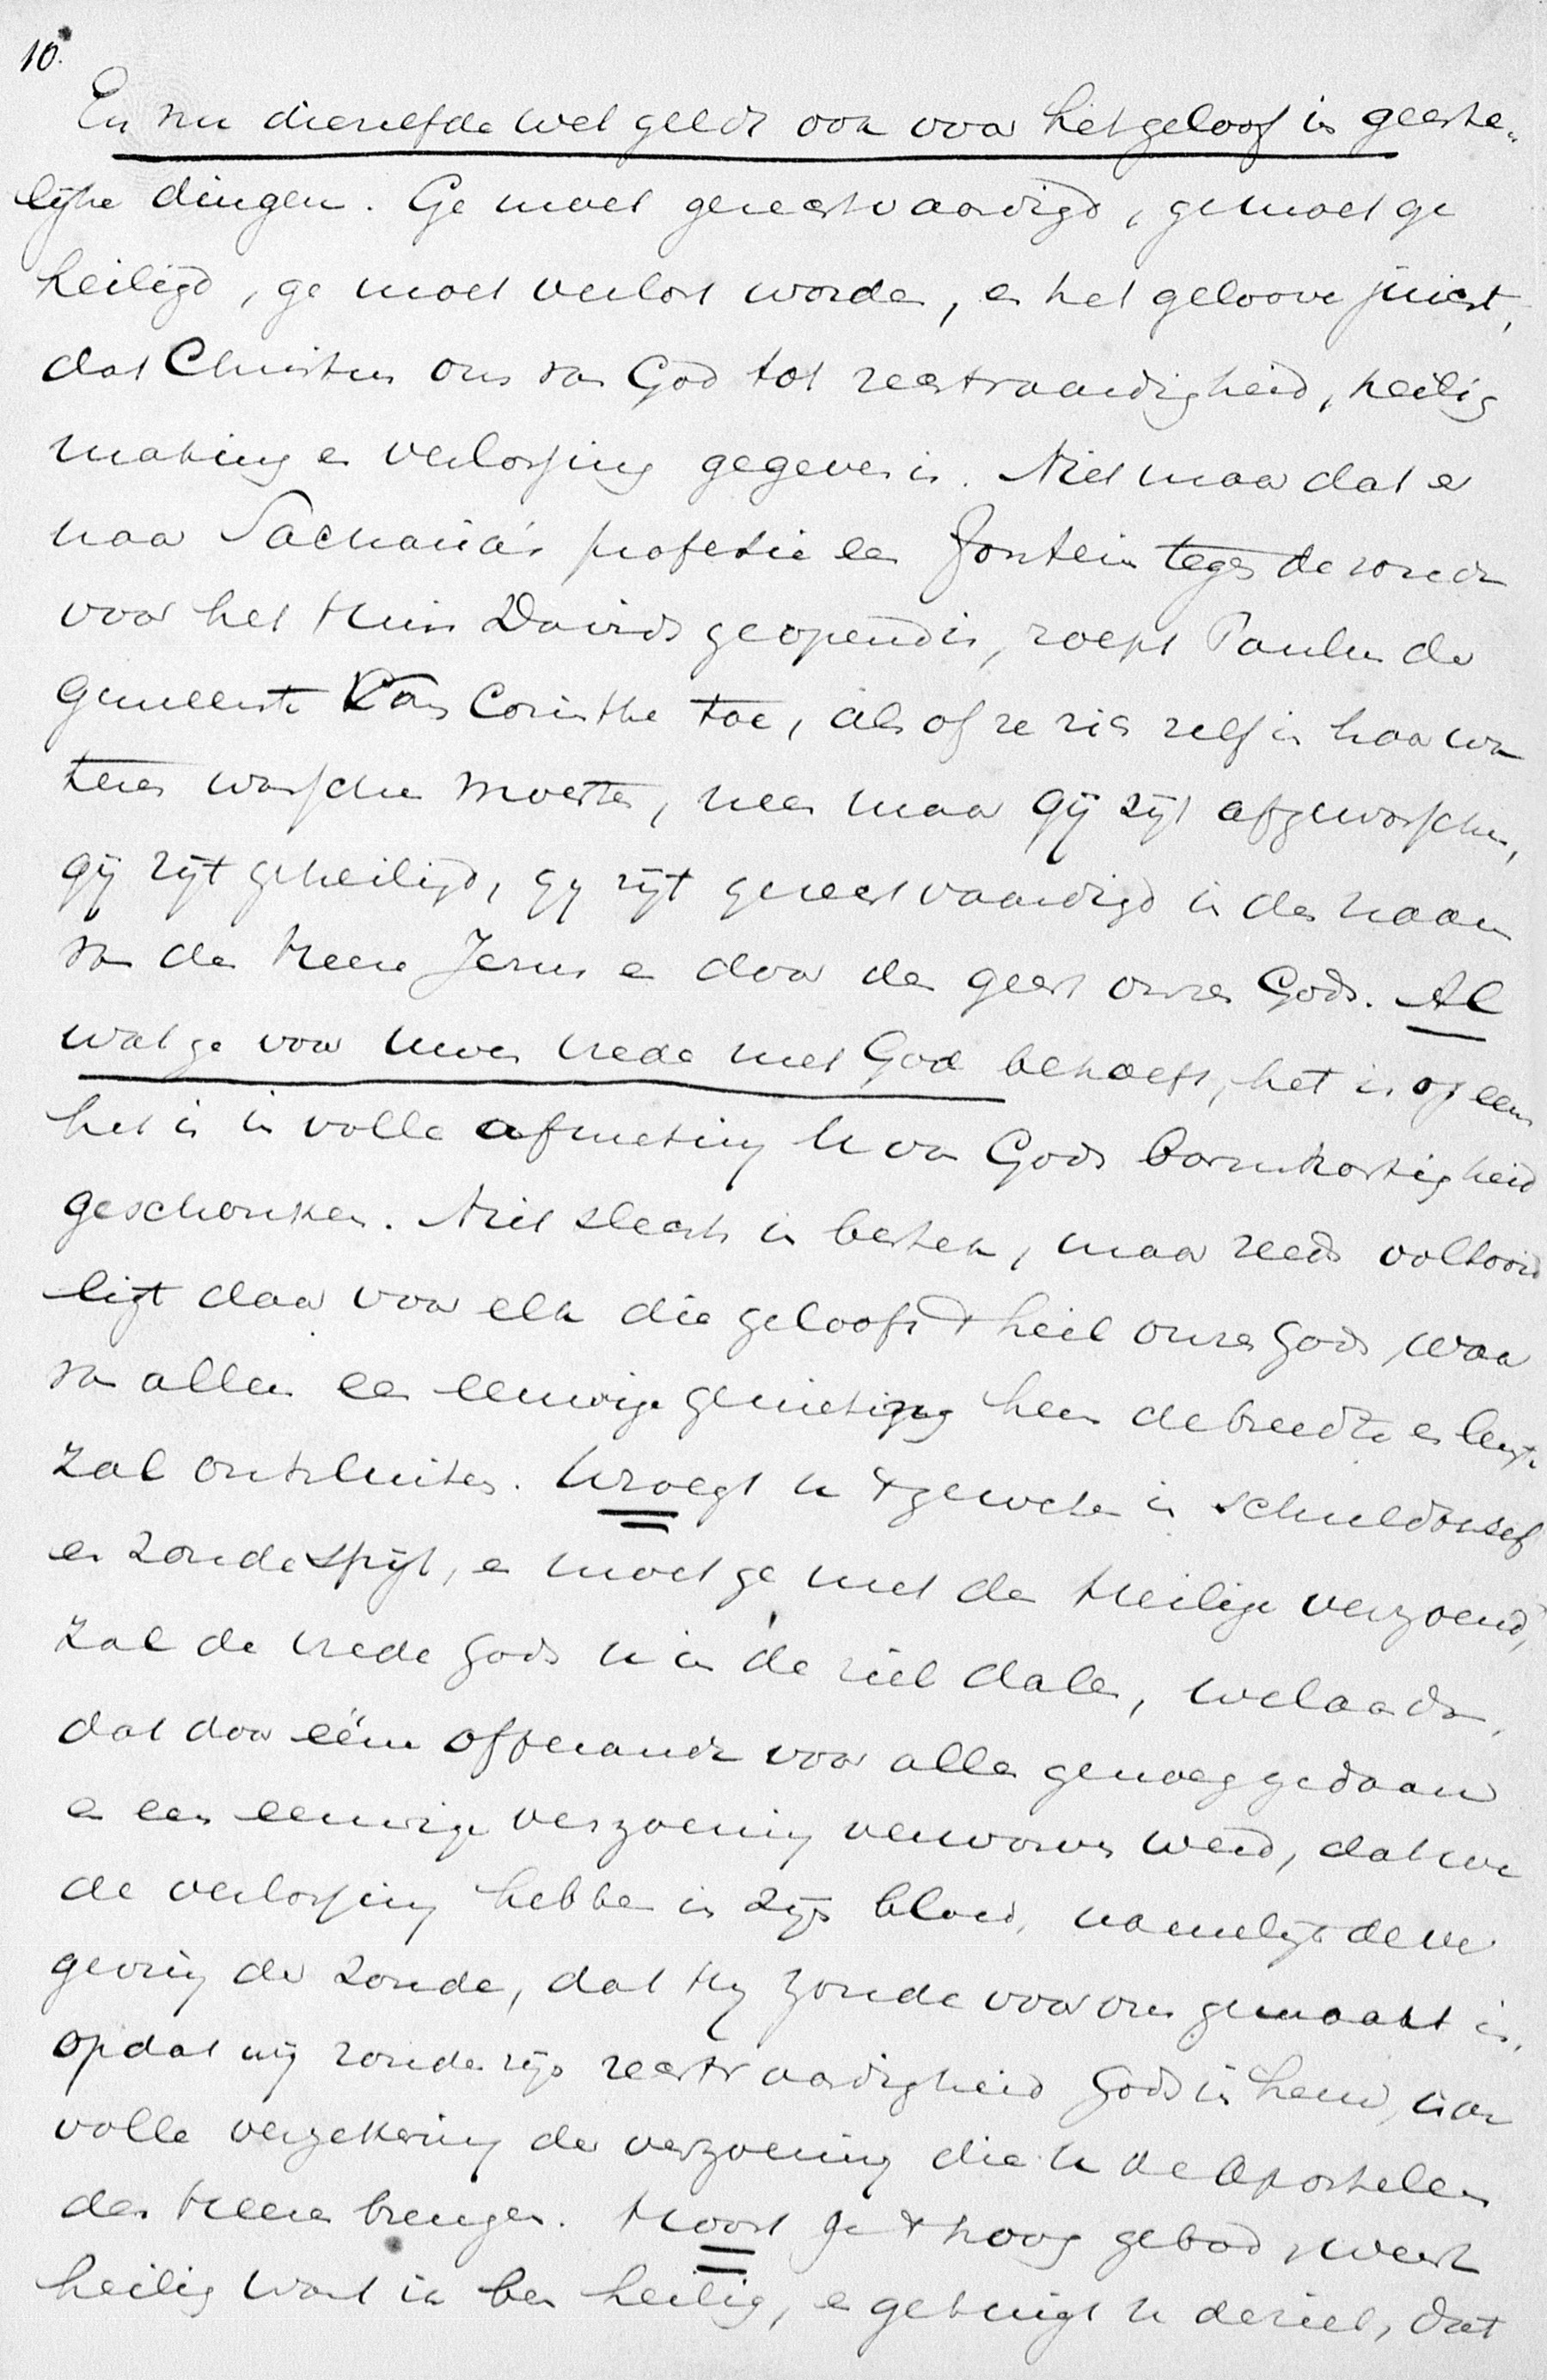 10.
En nu diezelfde wet geldt ook voor het geloof in geeste„
lijke dingen. Ge moet gerechtvaardigd, ge moet ge
heiligd, ge moet verlost worden, en het geloove juicht,
dat Christus ons van God tot rechtvaardigheid, heilig
making en verlossing gegeven is. Niet maar dat er
naar Sacharia's profetie een fontein tegen de zonde
voor het Huis Davids geopend is, roept Paulus de
gemeente van Corinthe toe, als of ze zich zelf in haar wa
teren wasschen moesten, neen maar gij zijt afgewasschen,
gij zijt geheiligd, gij zijt gerechtvaardigd in den naam
van den Heere Jezus en door den geest onzes Gods. Al
wat ge voor uwen vrede met God behoeft, het is op eens
het is in volle afmeting U van Gods barmhartigheid
geschonken. Niet slechts in bestek, maar reeds voltooid
ligt daar voor elk die gelooft 't heil onzes Gods, waar
van alleen een eeuwige genieting heen de breedte en lengte
zal ontsluiten. Wroegt u 't geweten in schuldbesef
en zondespijt, en moet ge met den Heilige verzoend,
zal de vrede Gods u in de ziel dalen, welaan dan,
dat door ééne offerande voor allen genoeg gedaan
en een eeuwige verzoening verworven werd, dat we
de verlossing hebben in zijn bloed, namelijk de ver
geving der zonde, dat Hij zonde voor ons gemaakt is,
opdat wij zouden zijn rechtvaardigheid Gods in hem,
volle verzekering der verzoening die u de Apostelen
des Heeren brengen. Hoort ge 't hoog gebod, weest
heilig want ik ben heilig, en getuigt u de ziel, dat